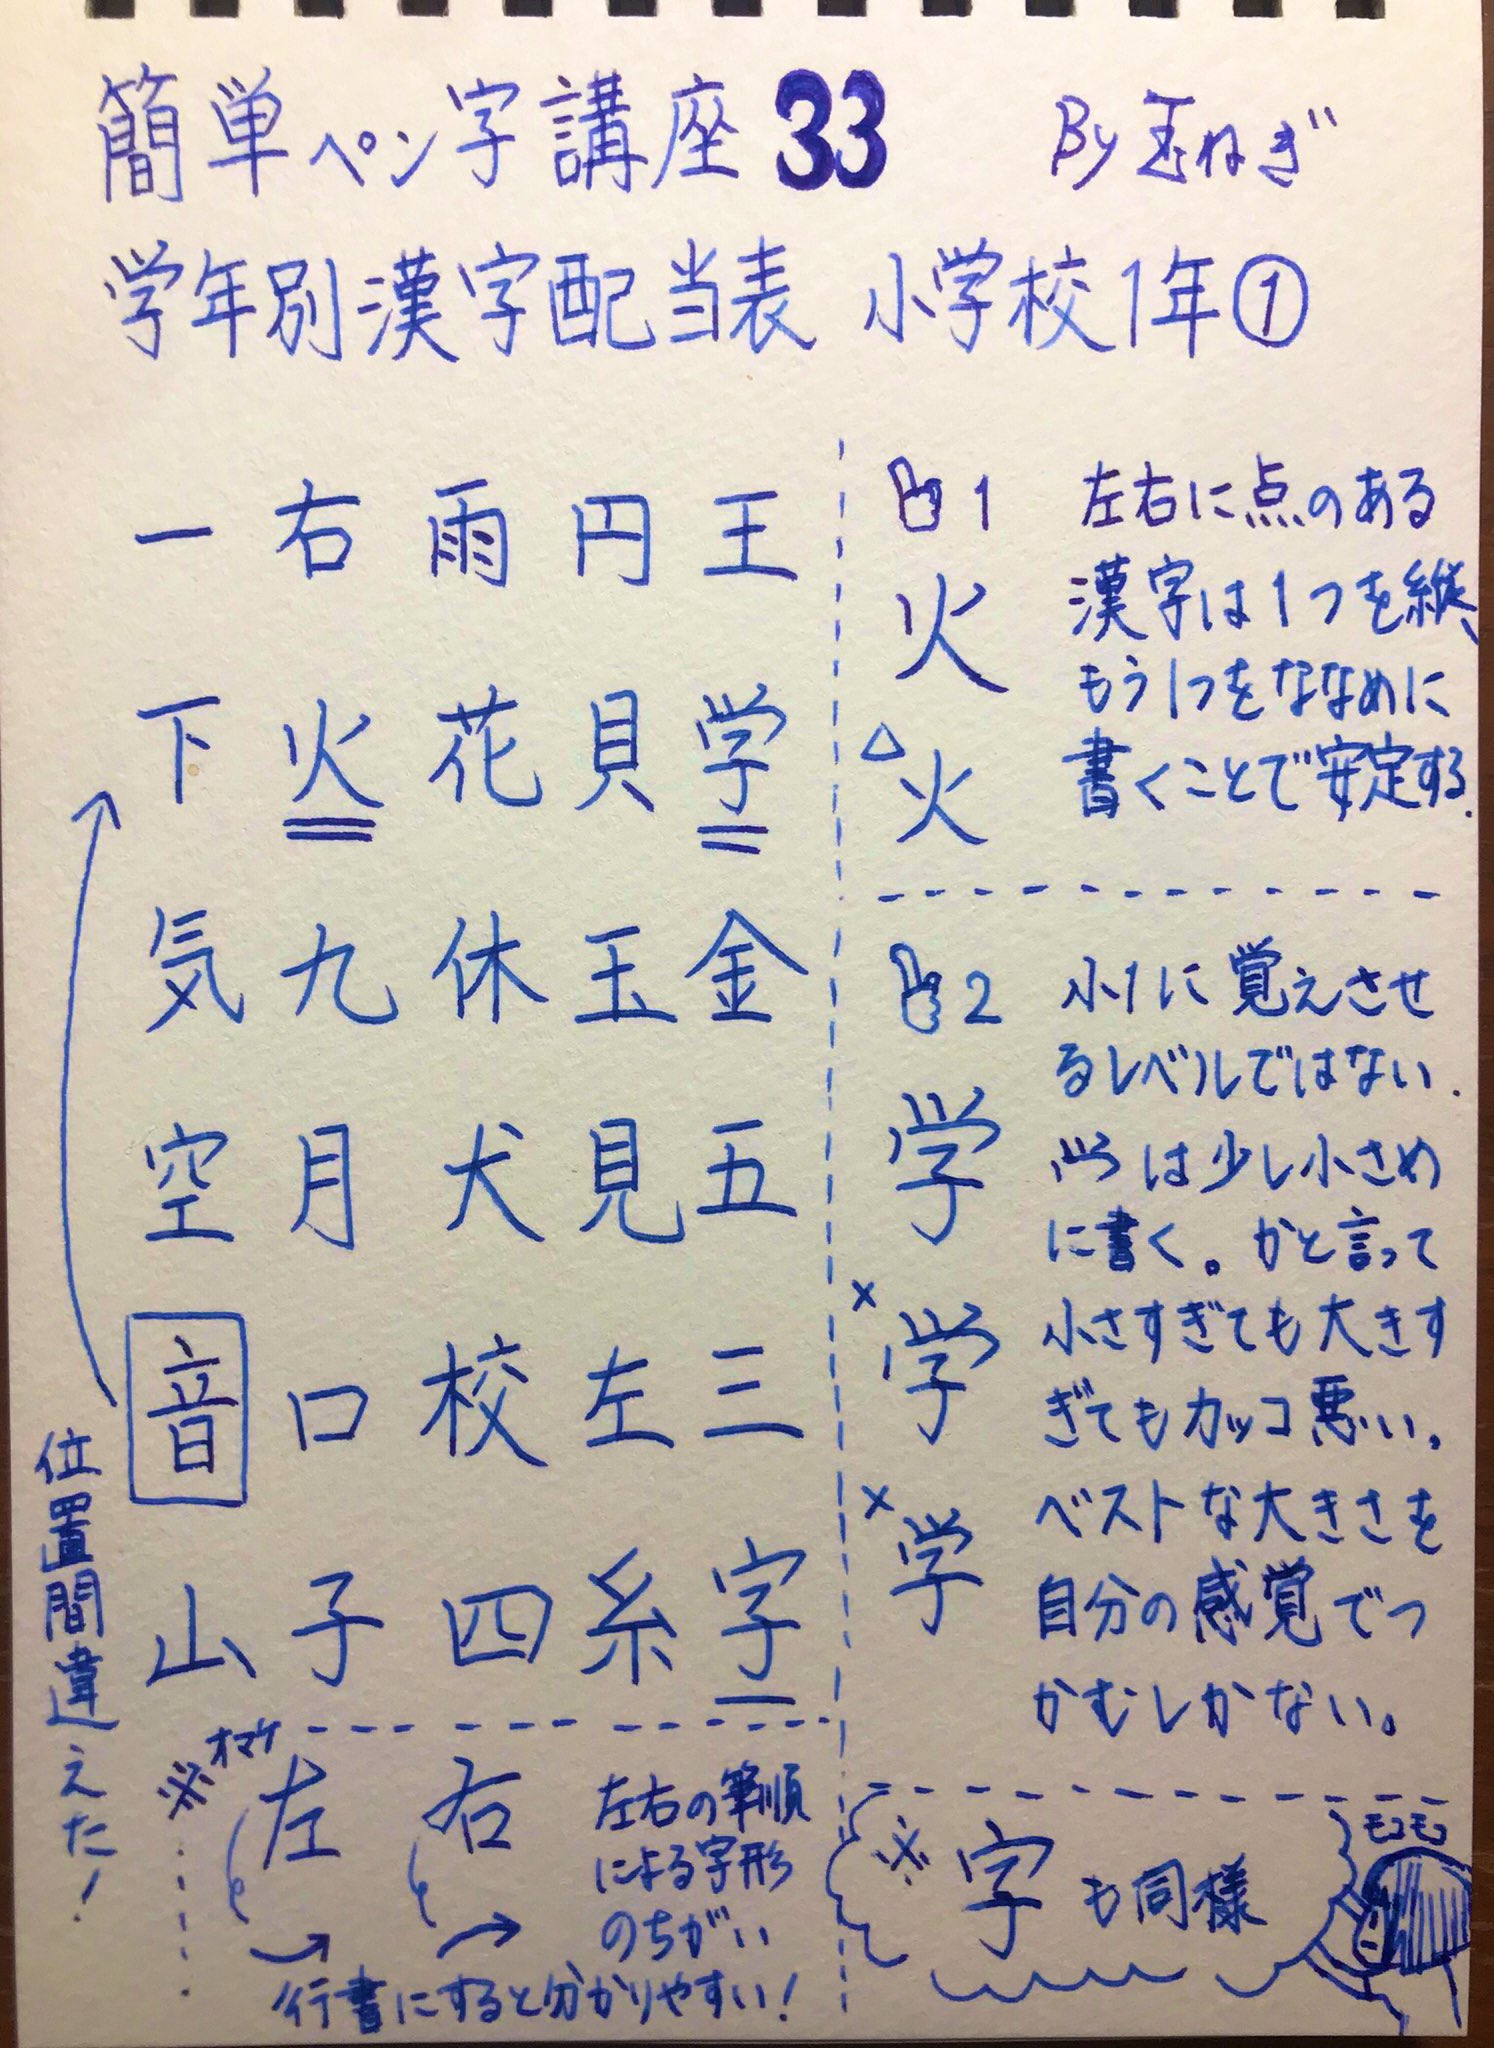 簡単ペン字講座33 By玉ねぎ
学年別漢字配当表 小学校1年①
一右雨円王
下火花貝学
気九休玉金
空月犬見五
音口校左三
山子四糸字
位置間違えた!
1 左右に点のある
漢字は1つを縦、
もう1つをななめに
書くことで安定する.
火
△
火
2 小1に覚えさせ
るレベルではない.
⺍は少し小さめ
に書く。かと言って
小さすぎても大きす
ぎてもカッコ悪い。
ベストな大きさを
自分の感覚でつ
かむしかない。
学
×
学
×
学
※オマケ
左 右
左右の筆順
による字形
のちがい
行書にすると分かりやすい!
※字も同様
モコモコ